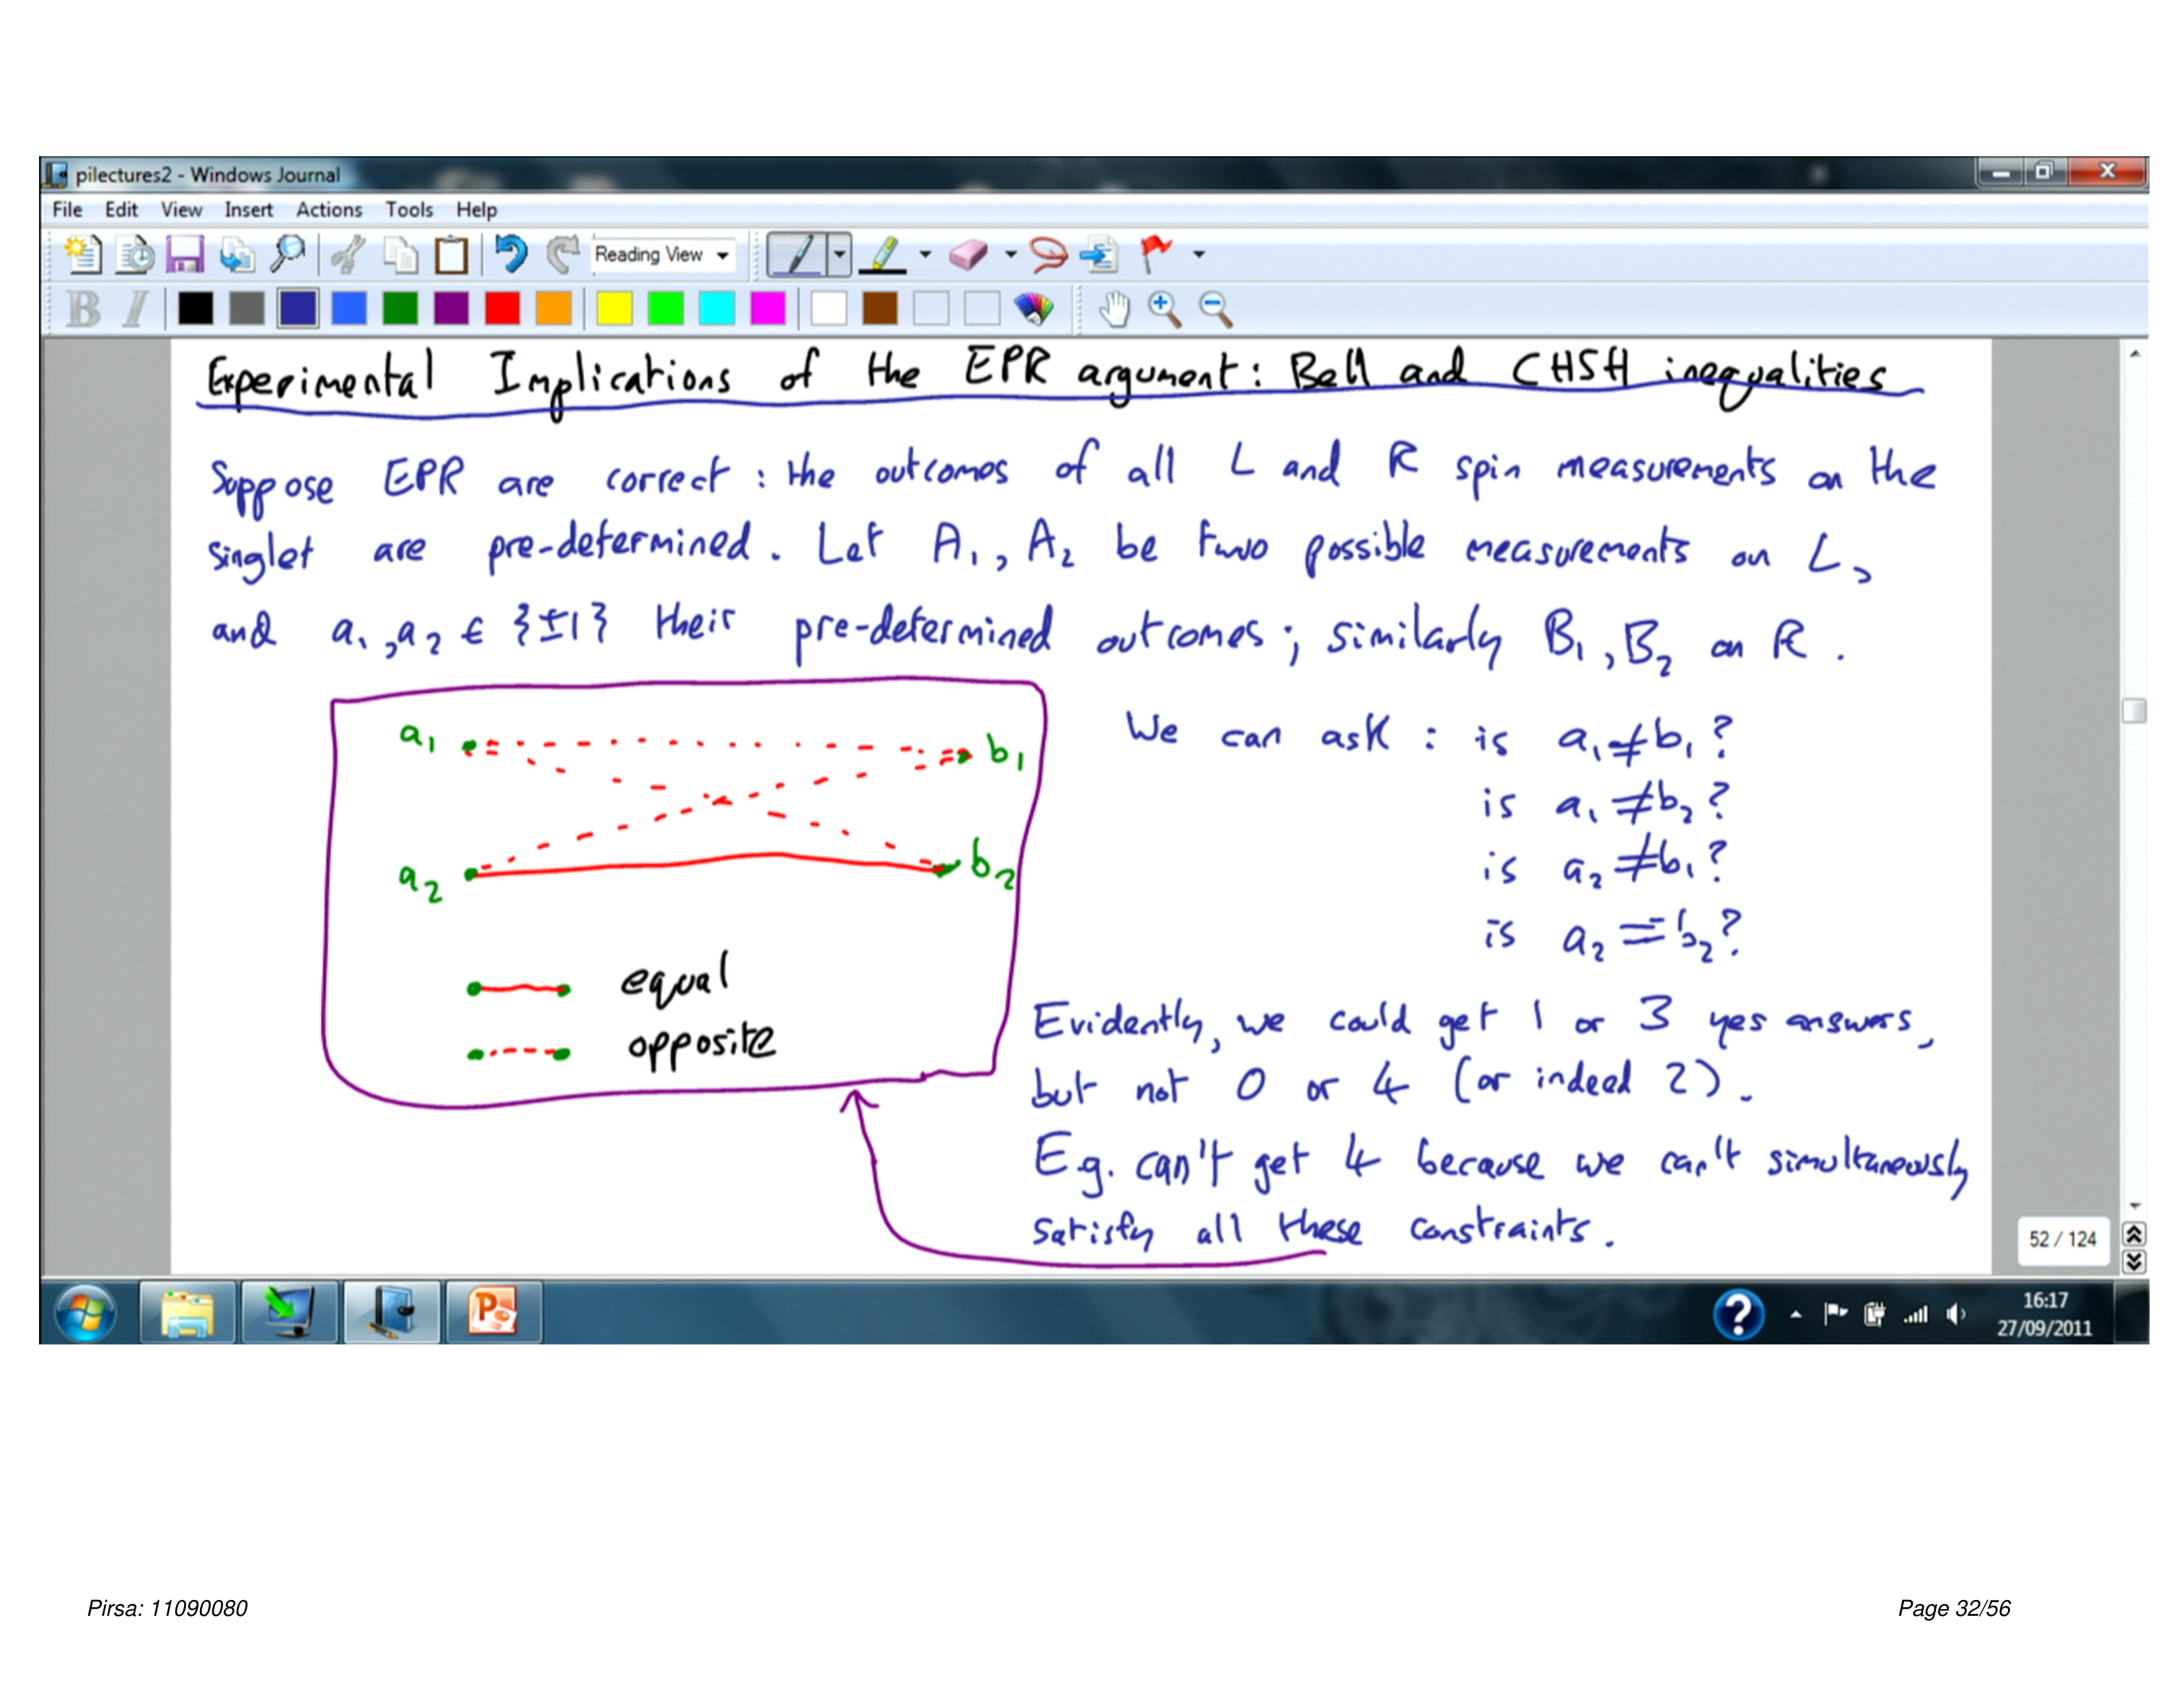 pilectures2 - Windows Journal
File Edit View Insert Actions Tools Help
Reading View
B I
Experimental Implications of the EPR argument: Bell and CHSH inequalities
Suppose EPR are correct: the outcomes of all L and R spin measurements on the
singlet are pre-determined. Let A₁, A₂ be two possible measurements on L,
and a₁, a₂ ∈ {±1} their pre-determined outcomes; similarly B₁, B₂ on R.
a₁ b₁
a₂ b₂
equal
opposite
We can ask: is a₁≠b₁?
is a₁≠b₂?
is a₂≠b₁?
is a₂=b₂?
Evidently, we could get 1 or 3 yes answers,
but not 0 or 4 (or indeed 2).
E.g. can't get 4 because we can't simultaneously
satisfy all these constraints.
52 / 124
16:17
27/09/2011
Pirsa: 11090080
Page 32/56